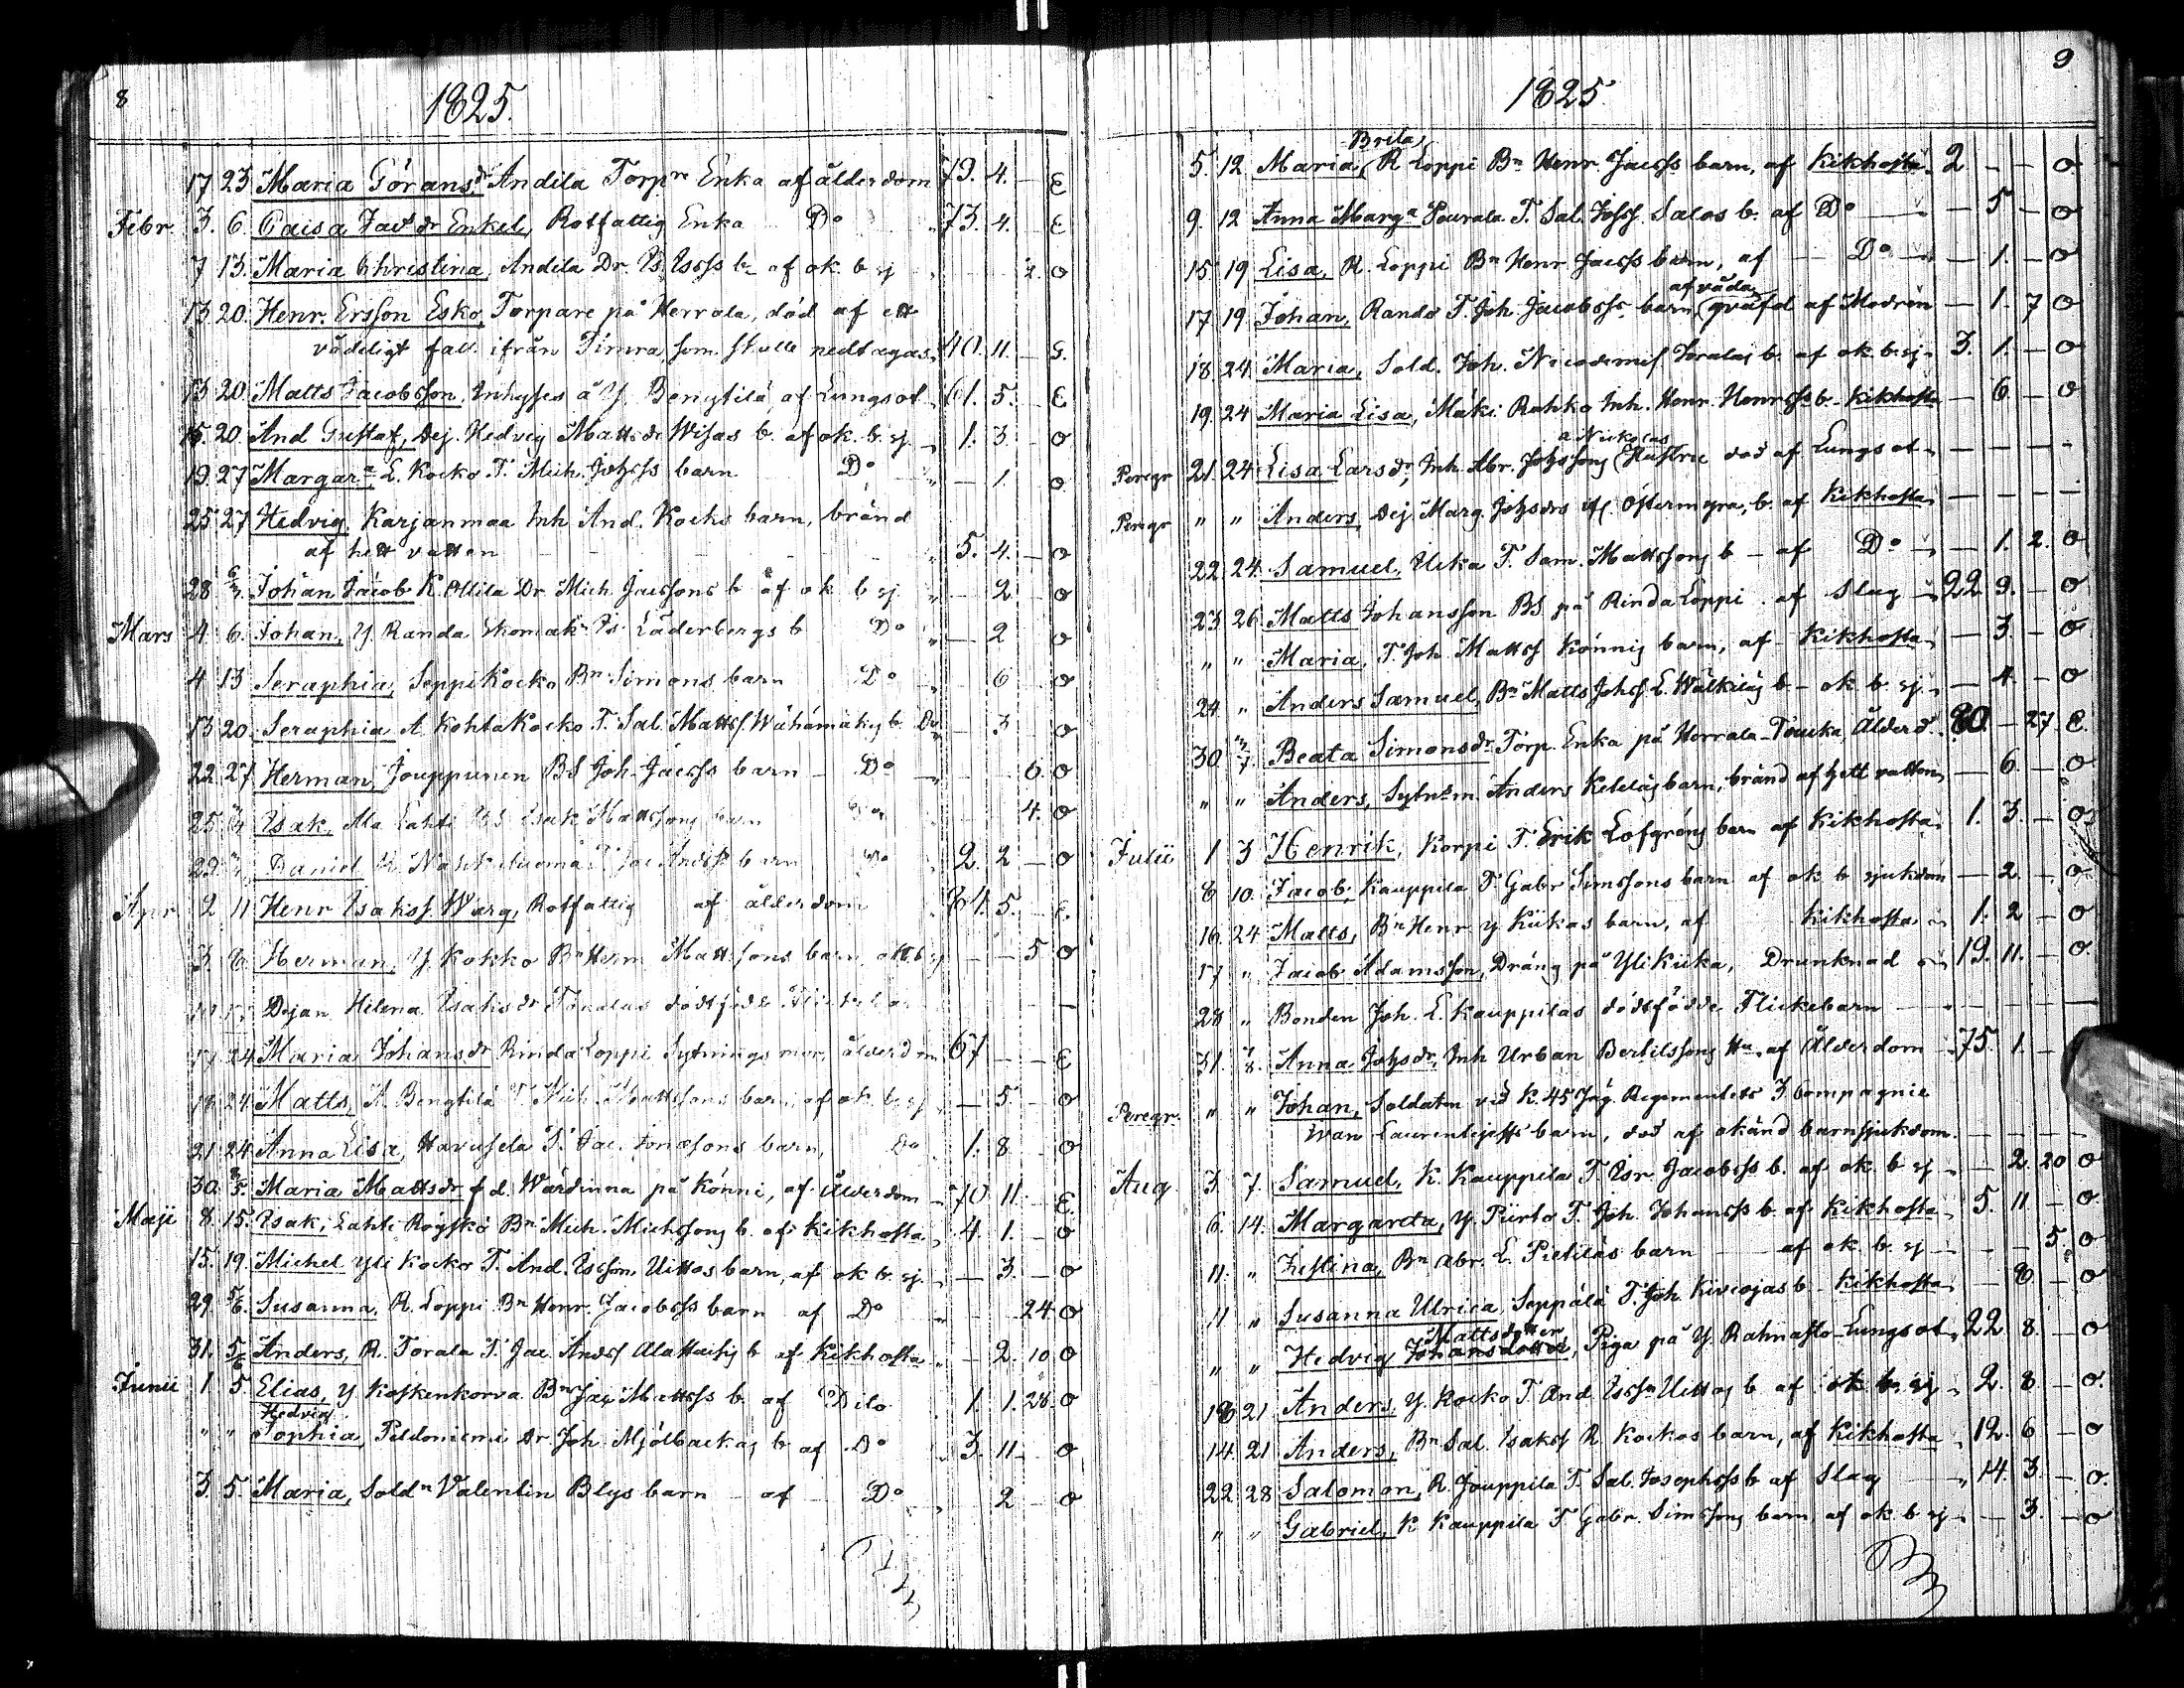 8
1825.
17 23 Maria Görans dr Andila Torp re Enka af ålderdom 79. 4. — E
Febr 3. 6. Caisa Jac dr Enkel, Rotfattig Enka Do 73. 4. E
7 13. Maria Christina, Andila Dr. Is. Isacss b. af ok. b sj 2. o
13 20. Henr. Ersson Esko, Torpare på Herrala, död af ett
vådeligt fall ifrån Timra som skulle nedtagas 40. 11. — G.
13 20 Matts Jacobsson, Inhyses å Y. Bengtilä, af Lungsot 61. 5. E
15. 20. And Gustaf, Dej. Hedvig Matts dr Wisas b. af ok. b. sj. 1. 3. o
19. 27 Margar a, L. Kocko T. Mich. Johss barn Do — 1. o
25 27 Hedvig, Karjanmaa Inh And. Kocks barn, bränd
af hett vatten 5. 4. — o
28 6/3 Johan Jacob K. Ollila Dr. Mich Jacssons b af ok b sj — 2 — o
Mars 4. 6. Johan, Y. Randa Skomak Is Läderbergs b Do — 2 o
4 13 Seraphia, Seppikocko Bn Simons barn Do 6 o
13 20. Seraphia A KohtaKocko T. Sal. Mattss Wähämäkis b. Do 3 o
22. 27 Herman, Jouppunen BS Joh. Jacss barn Do 6. o
25 Isak, Ala Lahti BS Isak Mattssons barn 4. o
29. Daniel barn Do 2. 2 — o
Apr 2 11 Henr Isakss. Warg, Rotfattig af ålderdom 5. E.
3. Herman, Y. Kokko Bn Herm Mattssons barn, ok b sj — — 5 o
Dejan Helena Isaks dr dödfödde
17. 24 Maria Johans dr Rinda Loppi Sytnings mor, ålderdom 67 — — E
18. 24. Matts, A. Bengtilä T. Mich. Mattssons barn, af ok. b. sj — 5 — o
21 24. Anna Lisa, Havusela T. Jac. Jonassons barn, Do 1. 8 o
30. 8/5. Maria Matts dr f d. Wärdinna på Könni, af Ålderdom 70 11. — E.
Maji 8. 15. Isak, Lahti Röyskö Bn Mich. Michssons b. af Kikhosta 4. 1. — o
15. 19. Michel Yli Kocko T. And. Isssons Uittos barn, af ok b. sj. — 3. — o
29. 5/6. Susanna, R. Loppi Bn Henr. Jacobss barn af Do 24 o
31. 5/6 Anders, R. Torala T. Jac. Andss b af Kikhosta — 2. 10 o
Junii 1. 5 Elias, Y Koskenkorva Bn Jac Mattss b. af Dito 1. 1. 28. o
Hedvig
" " Sophia, Peldoniemi Dr Joh. Mjölbackas b af Do 3. 11. o
3. 5. Maria, Sold n Valentin Blys barn — af Do 2 — o
9
1825.
Brita
5. 12. Maria, R Loppi Bn Henr. Jacss barn, af Kikhosta 2 — — o
9. 12 Anna Marg a Pourala T. Sal. Johss. Salos b. af Do — 5 — o
15 19 Lisa, R. Loppi Bn Henr Jacss barn, af Do — 1. — o
af våda
17 19. Johan, Rando T. Joh. Jacobss. barn qväfd af Modren — 1. 7 o
18. 24. Maria, Sold. Joh. Nicodemus Toralas b. af ok b. sj. 3. 1. — o
19. 24 Maria Lisa, Mäki Rahko Inh. Henr. Henrss b. Kikhosta — 6 — o
a Nickolas
Peregr 21. 24 Lisa Lars dr, Inh. Abr. Johssons Hustru död af Lungsot — — — —
Peregr " " Anders, Dej Marg. Johsdrs ifr. Östermyra, b. af Kikhosta — — — —
22. 24. Samuel, Ucka T. Sam. Mattssons b — af Do — 1. 2. o
23 26 Matts Johansson BS på Rinda Loppi af Slag 22 9. — o
" " Maria, T. Joh. Mattss Könnis barn, af Kikhosta — 3 — o
24 " Anders Samuel, Bn Matts Johss L. Wälkiläs b — ok b. sj. — 4. — o
30 3/7 Beata Simons dr Torp. Enka på Herrala-Toucka, Ålderd. 80. — 27. E.
" " Anders, Sytn. m. Anders Keteläs barn, bränd af hett vatten — 6. — o
Julii 1 3 Henrik, Korpi T. Erik Löfgréns barn af Kikhosta 1. 3. — o
8 10. Jacob, Kauppila T Gabr Simssons barn af ok b sjukdom — 2. — o
16. 24 Matts, Bn Henr. Y Kiikas barn, af Kikhosta 1. 2 — o
17 " Jacob Adamsson, Dräng på YliKiika, Drunknad 19. 11. — o.
28 " Bonden Joh. L. Kauppilas dödfödde Flickebarn — — — —
31. 7/8. Anna Johsdr, Inh Urban Bertilssons Hu, af Ålderdom 75. 1. —
Peregr. " " Johan, Soldaten vid K. 45 Jäg. Regementets 3 Compagnie
Iwan Laurentjeffs barn, död af okänd barnsjukdom. — — — —
Aug 3. 7. Samuel, K. Kauppila T. Isr. Jacobss b. af ok. b sj — 2 20 o
6. 14. Margareta, Y. Piirto T. Joh. Johanss b. af Kikhosta 5. 11 — o
11. " Justina, Bn Abr. L. Pietiläs barn af ok. b. sj — — 5. o
11 " Susanna Ulrica, Seppälä T. Joh. Kiviojas b. Kikhosta — 8 — o
Mattsdotter
" " Hedvig Johansdotter, Piga på Y. Rahnasto Lungsot 22 8. — o
18 21 Anders, Y. Kocko T. And Isssn Uittos b af ok b sj 2. 8 — o.
14. 21 Anders, Bn Sal. Isakss R. Kockos barn, af Kikhosta 12. 6 — o
22 28 Salomon, R. Jouppila T. Sal. Josephss b af Slag 14. 3 — o.
" " Gabriel, K Kauppila T Gabr. Simssons barn af ok b sj — 3. — o